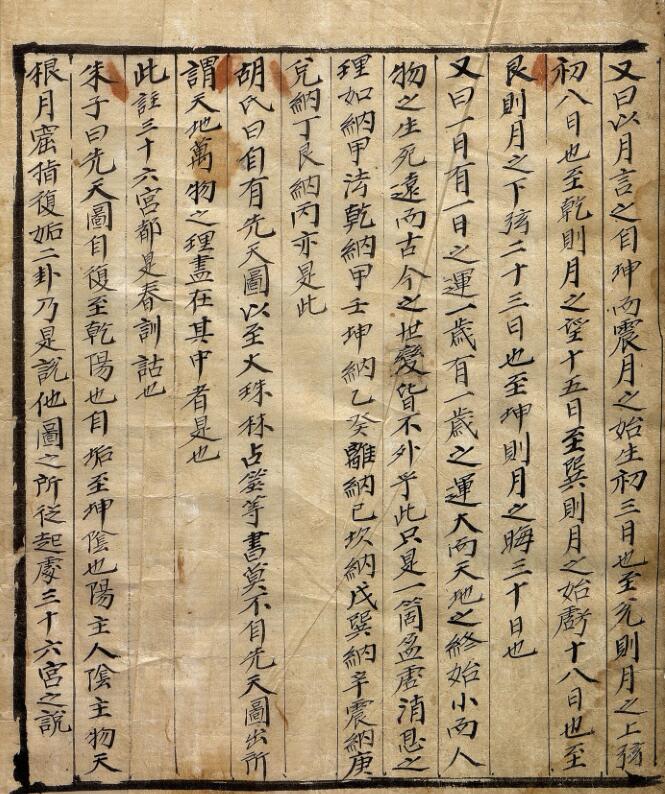 又曰以月言之自坤而震月之始生初三日也至兌則月之上弦
初八日也至乾則月之望十五日至巽則月之始虧十八日也至
艮則月之下弦二十三日也至坤則月之晦三十日也
又曰一日有一日之運一歲有一歲之運大而天地之終始小而人
物之生死遠而古今之世變皆不外乎此只是一箇盈虛消息之
理如納甲法乾納甲壬坤納乙癸離納己坎納戊巽納辛震納庚
兌納丁艮納丙亦是此
胡氏曰自有先天圖以至大珠林占筮等書莫不自先天圖出所
謂天地萬物之理盡在其中者是也
此註三十六宮都是春訓詁也
朱子曰先天圖自復至乾陽也自垢至坤陰也陽主人陰主物天
根月窟指復姤二卦乃是說他圖之所從起處三十六宮之說